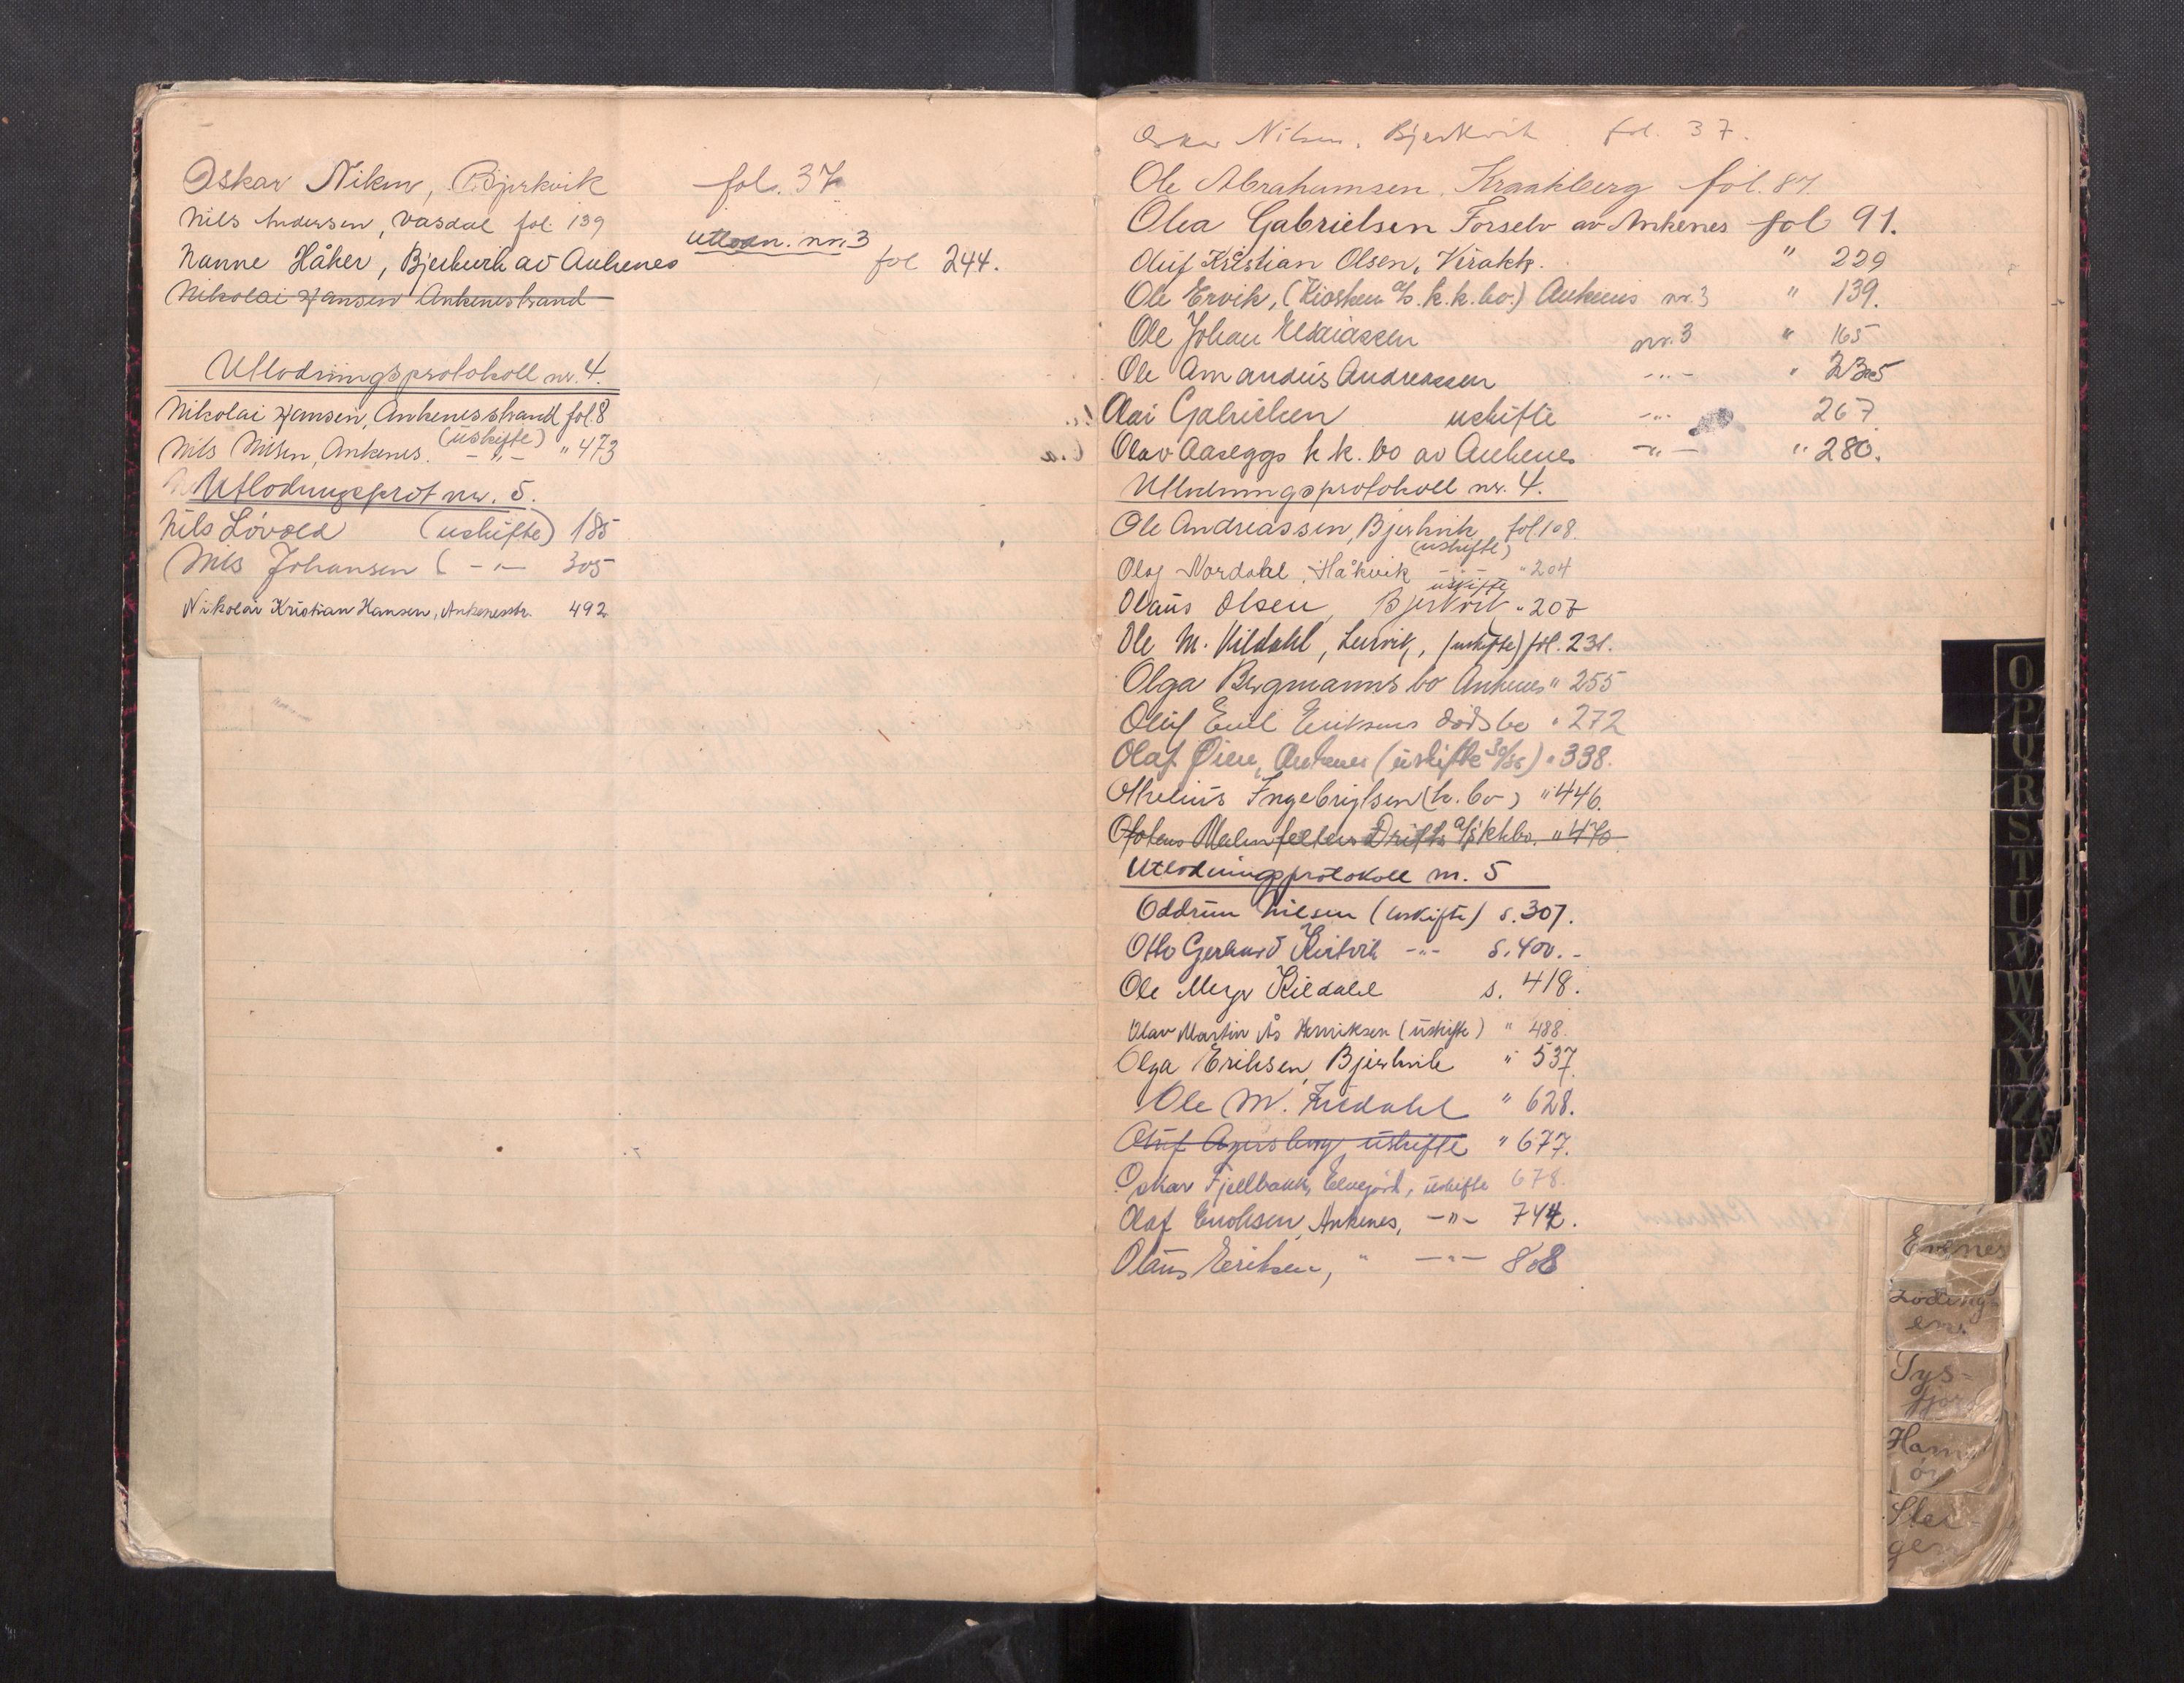 Oskar Nilsen, Bjerkvik fol. 37
Nils Andersen, Vasdal fol. 139
Utlodn. nr. 3
Nanne Håker, Bjerkvik av Ankenes fol 244.
Nikolai Hansen Ankenesstrand
Utlodningsprotokoll nr. 4.
Nikolai Hansen, Ankenesstrand fol. 8
Nils Nilsen, Ankenes. (uskifte) " 473
Utlodningsprot nr. 5.
Nils Lövold (uskifte) 185
Nils Johansen ( -"- 305
Nikolai Kristian Hansen, Ankenesstr. 492
Oskar Nilsen, Bjerkvik fol. 37.
Ole Abrahamsen, Kraakberg fol. 87
Olea Gabrielsen Forselv av Ankenes fol 91.
Oluf Kristian Olsen, " 229
Ole Ervik, (Kiosken a/s. k.k. bo.) Ankenes nr. 3 " 139.
Ole Johan nr. 3 " 165
Ole Amandus Andreassen -"- " 235
Olai Gabrielsen uskifte -"- 267
Olav Aaseggs k k. bo av Ankenes -"- " 280.
Utlodningsprotokoll nr. 4.
Ole Andreassen, Bjerkvik, fol. 108.
(uskifte)
Olaf Nordahl, Håkvik -"- " 204
uskifte
Olaus Olsen, Bjerkvik " 207
Ole M. Kildahl, Leirvik, (uskifte) fol. 231.
Olga Bergmanns bo Ankenes " 255
Oluf Emil Eriksens dødsbo " 272
Olaf Øien, Ankenes (uskifte 30/36) " 338.
Othelius Ingebrigtsen (k. bo) " 446.
Ofotens Malmfelters Drifts a/s' kkbo. " 470
Utlodningsprotokoll nr. 5
Oddrun Nilsen (uskifte) s. 307.
Otto Gerhard -"- s. 400. -
Ole Meyer Kildahl s. 418.
Olav Martin Ås Henriksen (uskifte) " 488.
Olga Eriksen, Bjerkvik " 537.
Ole M. Kildahl " 628.
Oluf Agersborg, uskifte " 677.
Oskar Fjellbakk, Elvegård, uskifte 678.
Olaf Enoksen, Ankenes, -"- 744.
Olaus Eriksen, " -"- 808
O
P
Q
R
S
T
U
V
W
X
Y
Z
Evenes
Lödingen
Tys-
fjord
Ham-
ör
Stei-
gen